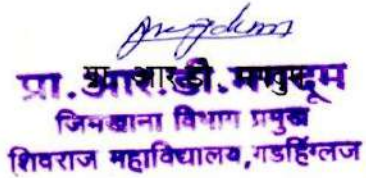 प्रा. आर. डी. मगदूम
प्रा. आर. डी. मगदूम
जिमखाना विभाग प्रमुख
शिवराज महाविद्यालय, गडहिंग्लज